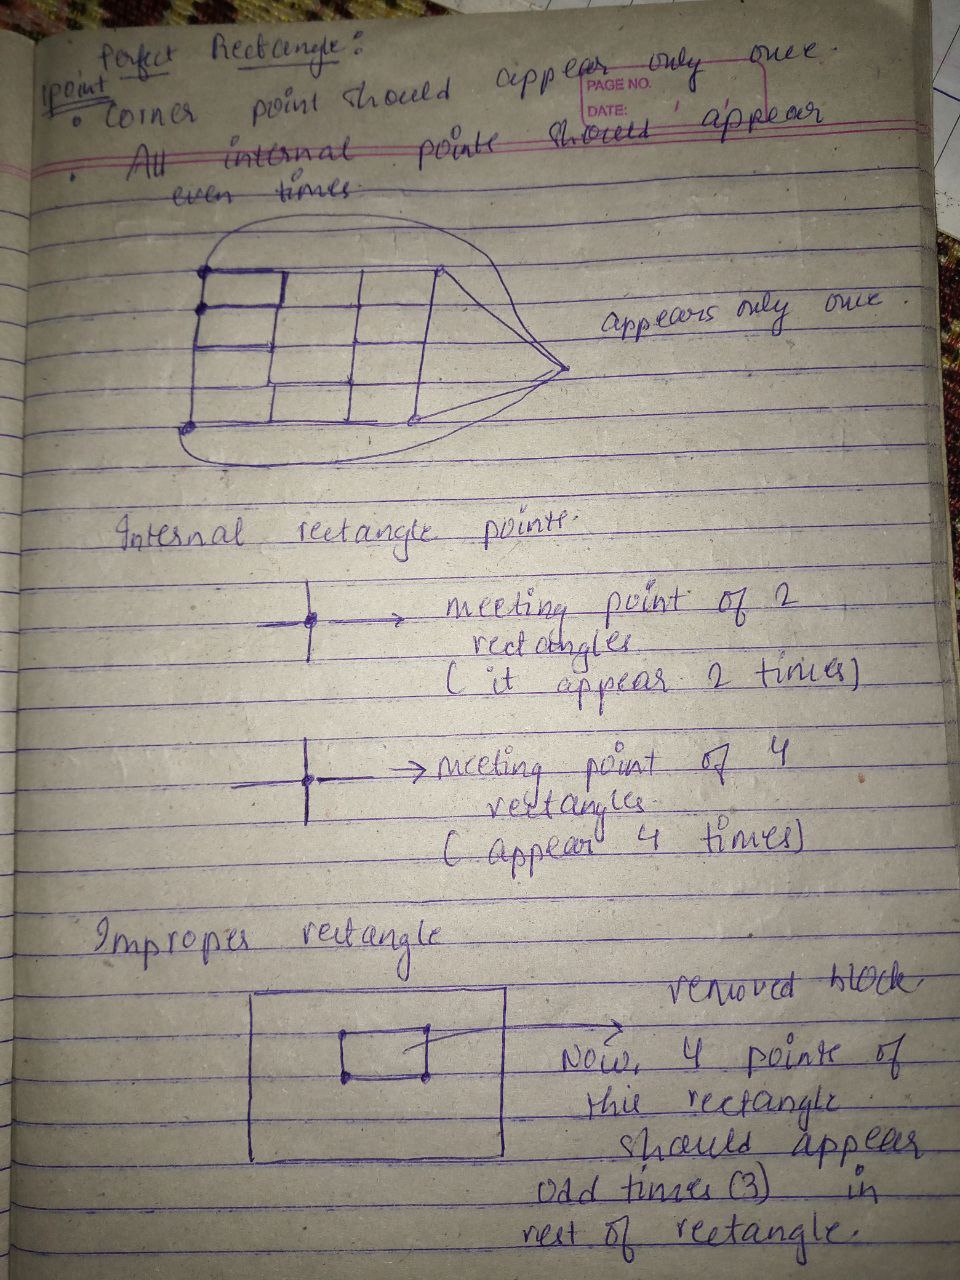 Perfect Rectangle:
point
• Corner point should appear only once.
PAGE NO.
DATE:
• All internal points should appear
even times.
appears only once.
Internal rectangle points.
meeting point of 2
rectangles
( it appear 2 times)
meeting point of 4
rectangles
( appear 4 times)
Improper rectangle
removed block.
Now, 4 points of
this rectangle
should appear
odd times (3) in
rest of rectangle.